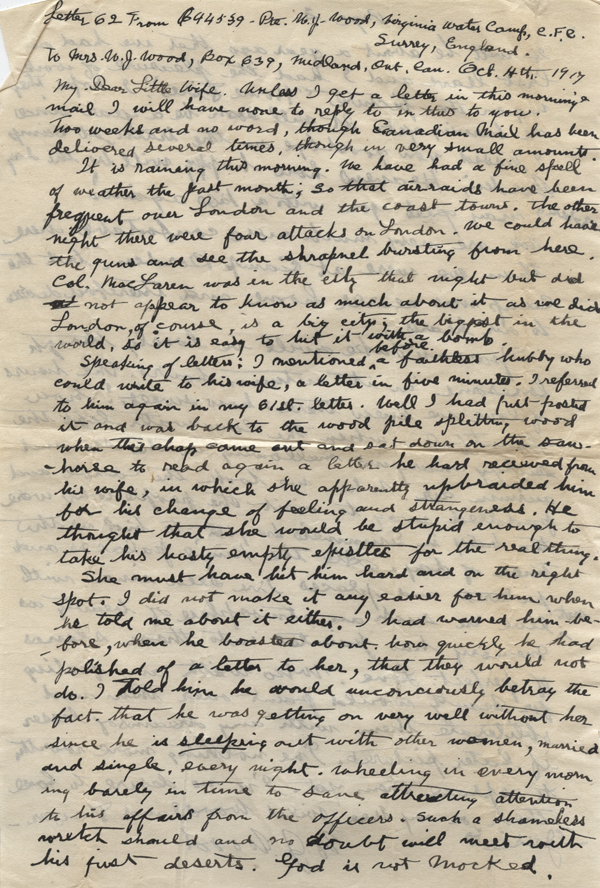 Letter 62 From B94539 - Pte. W.J. Wood, Virginia Water Camp, C.F.C.
Surrey, England.
To Mrs. W.J. Wood, Box 639, Midland, Ont. Can. Oct. 4th. 1917
My Dear Little Wife. Unless I get a letter in this morning's
mail I will have none to reply to in this to you.
Two weeks and no word, though Canadian Mail has been
delivered several times, though in very small amounts.
It is raining this morning. We have had a fine spell
of weather the past month; so that air-raids have been
frequent over London and the coast towns. The other
night there were four attacks on London. We could hear
the guns and see the shrapnel bursting from here.
Col. MacLaren was in the city that night but did
not appear to know as much about it as we did
London, of course, is a big city; the biggest in the
world, so it is easy to hit it with a bomb.
Speaking of letters; I mentioned before a faithless hubby who
could write to his wife, a letter in five minutes. I referred
to him again in my 61st. letter. Well I had just posted
it and was back to the wood pile splitting wood
when this chap came out and sat down on the saw-
-horse to read again a letter he had received from
his wife, in which she apparently upbraided him
for his change of feeling and strangeness. He
thought that she would be stupid enough to
take his hasty empty epistles for the real thing.
She must have hit him hard and on the right
spot. I did not make it any easier for him when
he told me about it either. I had warned him be-
-fore, when he boasted about how quickly he had
polished of a letter to her, that they would not
do. I told him he would unconciously betray the
fact that he was getting on very well without her
since he is sleeping out with other women, married
and single, every night. Wheeling in every morn
ing barely in time to save attracting attention
to his affairs from the officers. Such a shameless
wretch should and no doubt will meet with
his just deserts. God is not Mocked.